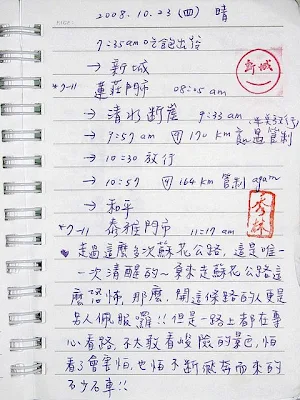 2008.10.23 (四) 晴
7:35am 吃飽出發
→ 新城
新城
47-11 蓮莊門市 08:05am
→ 清水斷崖 9:33am
→ 9:57am 的 170 km 管制
→ 10:30 放行
→ 10:57 的 164 km 管制 again
→ 和平
秀林
47-11 泰雅門市 11:17am
走過這麼多次蘇花公路, 這是唯一
一次清醒的~ 拿來走蘇花公路這
麼恐怖, 那麼, 開這條路的人更是
另人佩服囉!! 但是一路上都在專
心看路, 不太敢看峻險的景色, 怕
看了會害怕, 也怕不斷飆奔而來的
石少石車!!